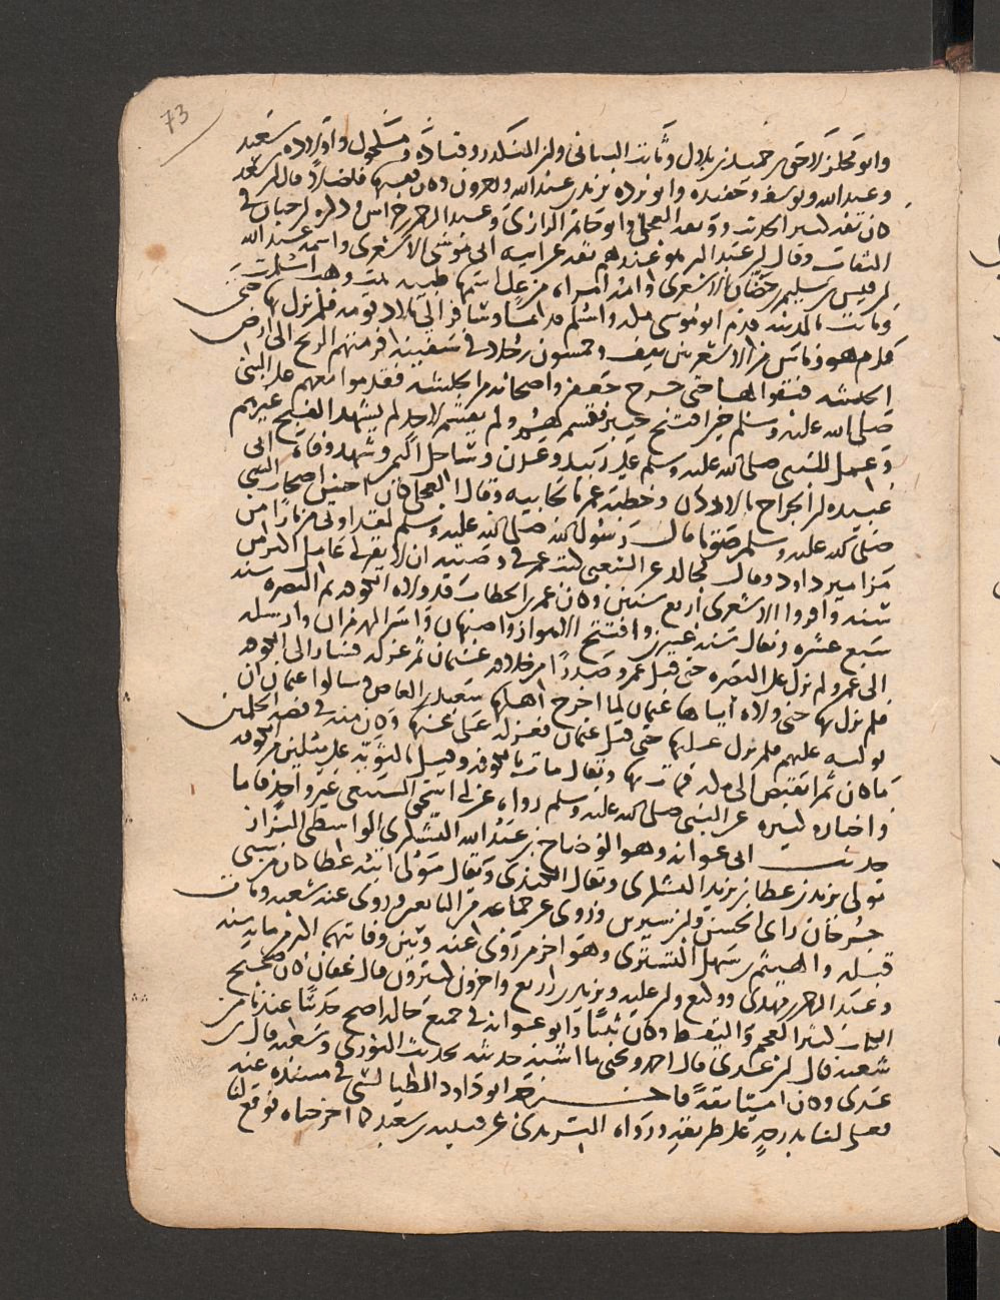 73
وابو مجلز لاحق بن حميد وبلال وثابت البناني وابن المنكدر وقتادة ومكحول واولاده سعيد
وعبد الله ويوسف وحفيده وابو برده بريد بن عبد الله واخرون وكان فقيها فاضلا قال ابن سعد
كان ثقه كثير الحديث ووثقه العجلي وابو حاتم الرازي وعبد الرحمن بن خراش وذكره ابن حبان في
الثقات وقال ابن عبد البر هو عندهم ثقه عن ابيه ابي موسى الاشعري واسمه عبد الله
بن قيس بن سليم بن حضار الاشعري وامه امراه من عك اسمها طيبه بنت وهب اسلمت
وماتت بالمدينه قدم ابو موسى مكه واسلم قديما وسافر الى بلاد قومه فلم يزل بها حتى
قدم هو وناس من الاشعريين نيف وخمسون رجلا في سفينه فرمتهم الريح الى ارض
الحبشه فبقوا بها حتى خرج جعفر واصحابه من الحبشه فقدموا معهم على النبي
صلى الله عليه وسلم حين افتتح خيبر فقسم لهم ولم يقسم لاحد لم يشهد الفتح غيرهم
وعمل للنبي صلى الله عليه وسلم على زبيد وعدن وساحل اليمن وشهد وفاة ابي
عبيده بن الجراح بالاردن وخطبة عمر بالجابيه وقال العجلي كان احسن اصحاب النبي
صلى الله عليه وسلم صوتا قال رسول الله صلى الله عليه وسلم لقد اوتي مزمارا من
مزامير داود وقال مجالد عن الشعبي كتب عمر في وصيته ان لا يقر لي عامل اكثر من
سنه واقروا الاشعري اربع سنين وكان عمر بن الخطاب قد ولاه الكوفه ثم البصره سنه
سبع عشره ويقال سنه عشرين وافتتح الاهواز واصبهان واسر الهرمزان وارسله
الى عمر ولم يزل على البصره حتى قتل عمر وصدرا من خلافه عثمان ثم عزله فسار الى الكوفه
فلم يزل بها حتى ولاه اياها عثمان لما اخرج اهلها سعيد بن العاص وسالوا عثمان ان
يوليه عليهم فلم يزل عليها حتى قتل عثمان فعزله علي عنها وكان منه في قصه الحكمين
ما كان ثم انقبض الى مكه فمات بها ويقال مات بالكوفه وقيل بالثويه على ميلين من الكوفه
واخباره كثيره عن النبي صلى الله عليه وسلم رواه عن ابي اسحق السبيعي غير واحد فاما
حديث ابي عوانه وهو الوضاح بن عبد الله اليشكري الواسطي البزاز
مولى يزيد بن عطا بن يزيد اليشكري ويقال الكندي ويقال مولى ابنه عطا كان من سبي
جرجان راى الحسن وابن سيرين وروى عن جماعه من التابعين وروى عنه شعبه ومات
قبله والهيثم بن سهل التستري وهو اخر من روى عنه وبين وفاتهما اكثر من مايه سنه
وعبد الرحمن بن مهدي ووكيع وابن عليه ويزيد بن زريع واخرون كثيرون قال عفان كان صحيح
الكتاب كثير العجم والنقط وكان ثبتا وابو عوانه في جميع حاله اصح حديثا عندنا من
شعبه قال ابن عدي قال احمد ويحيى ما اشبه حديثه بحديث الثوري وشعبه قال ابن
عدي وكان امينا ثقه فاخبر ابو داود الطيالسي في مسنده عنه
فعلى لنا بدرجه على طريقه ورواه الترمذي عن قتيبه بن سعيد كما اخرجناه فوقع لنا